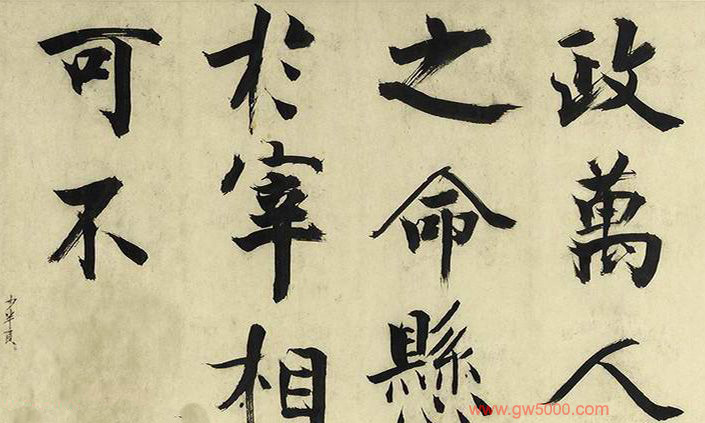 政萬人
之命懸
於宰相
可不
www.gw5000.com